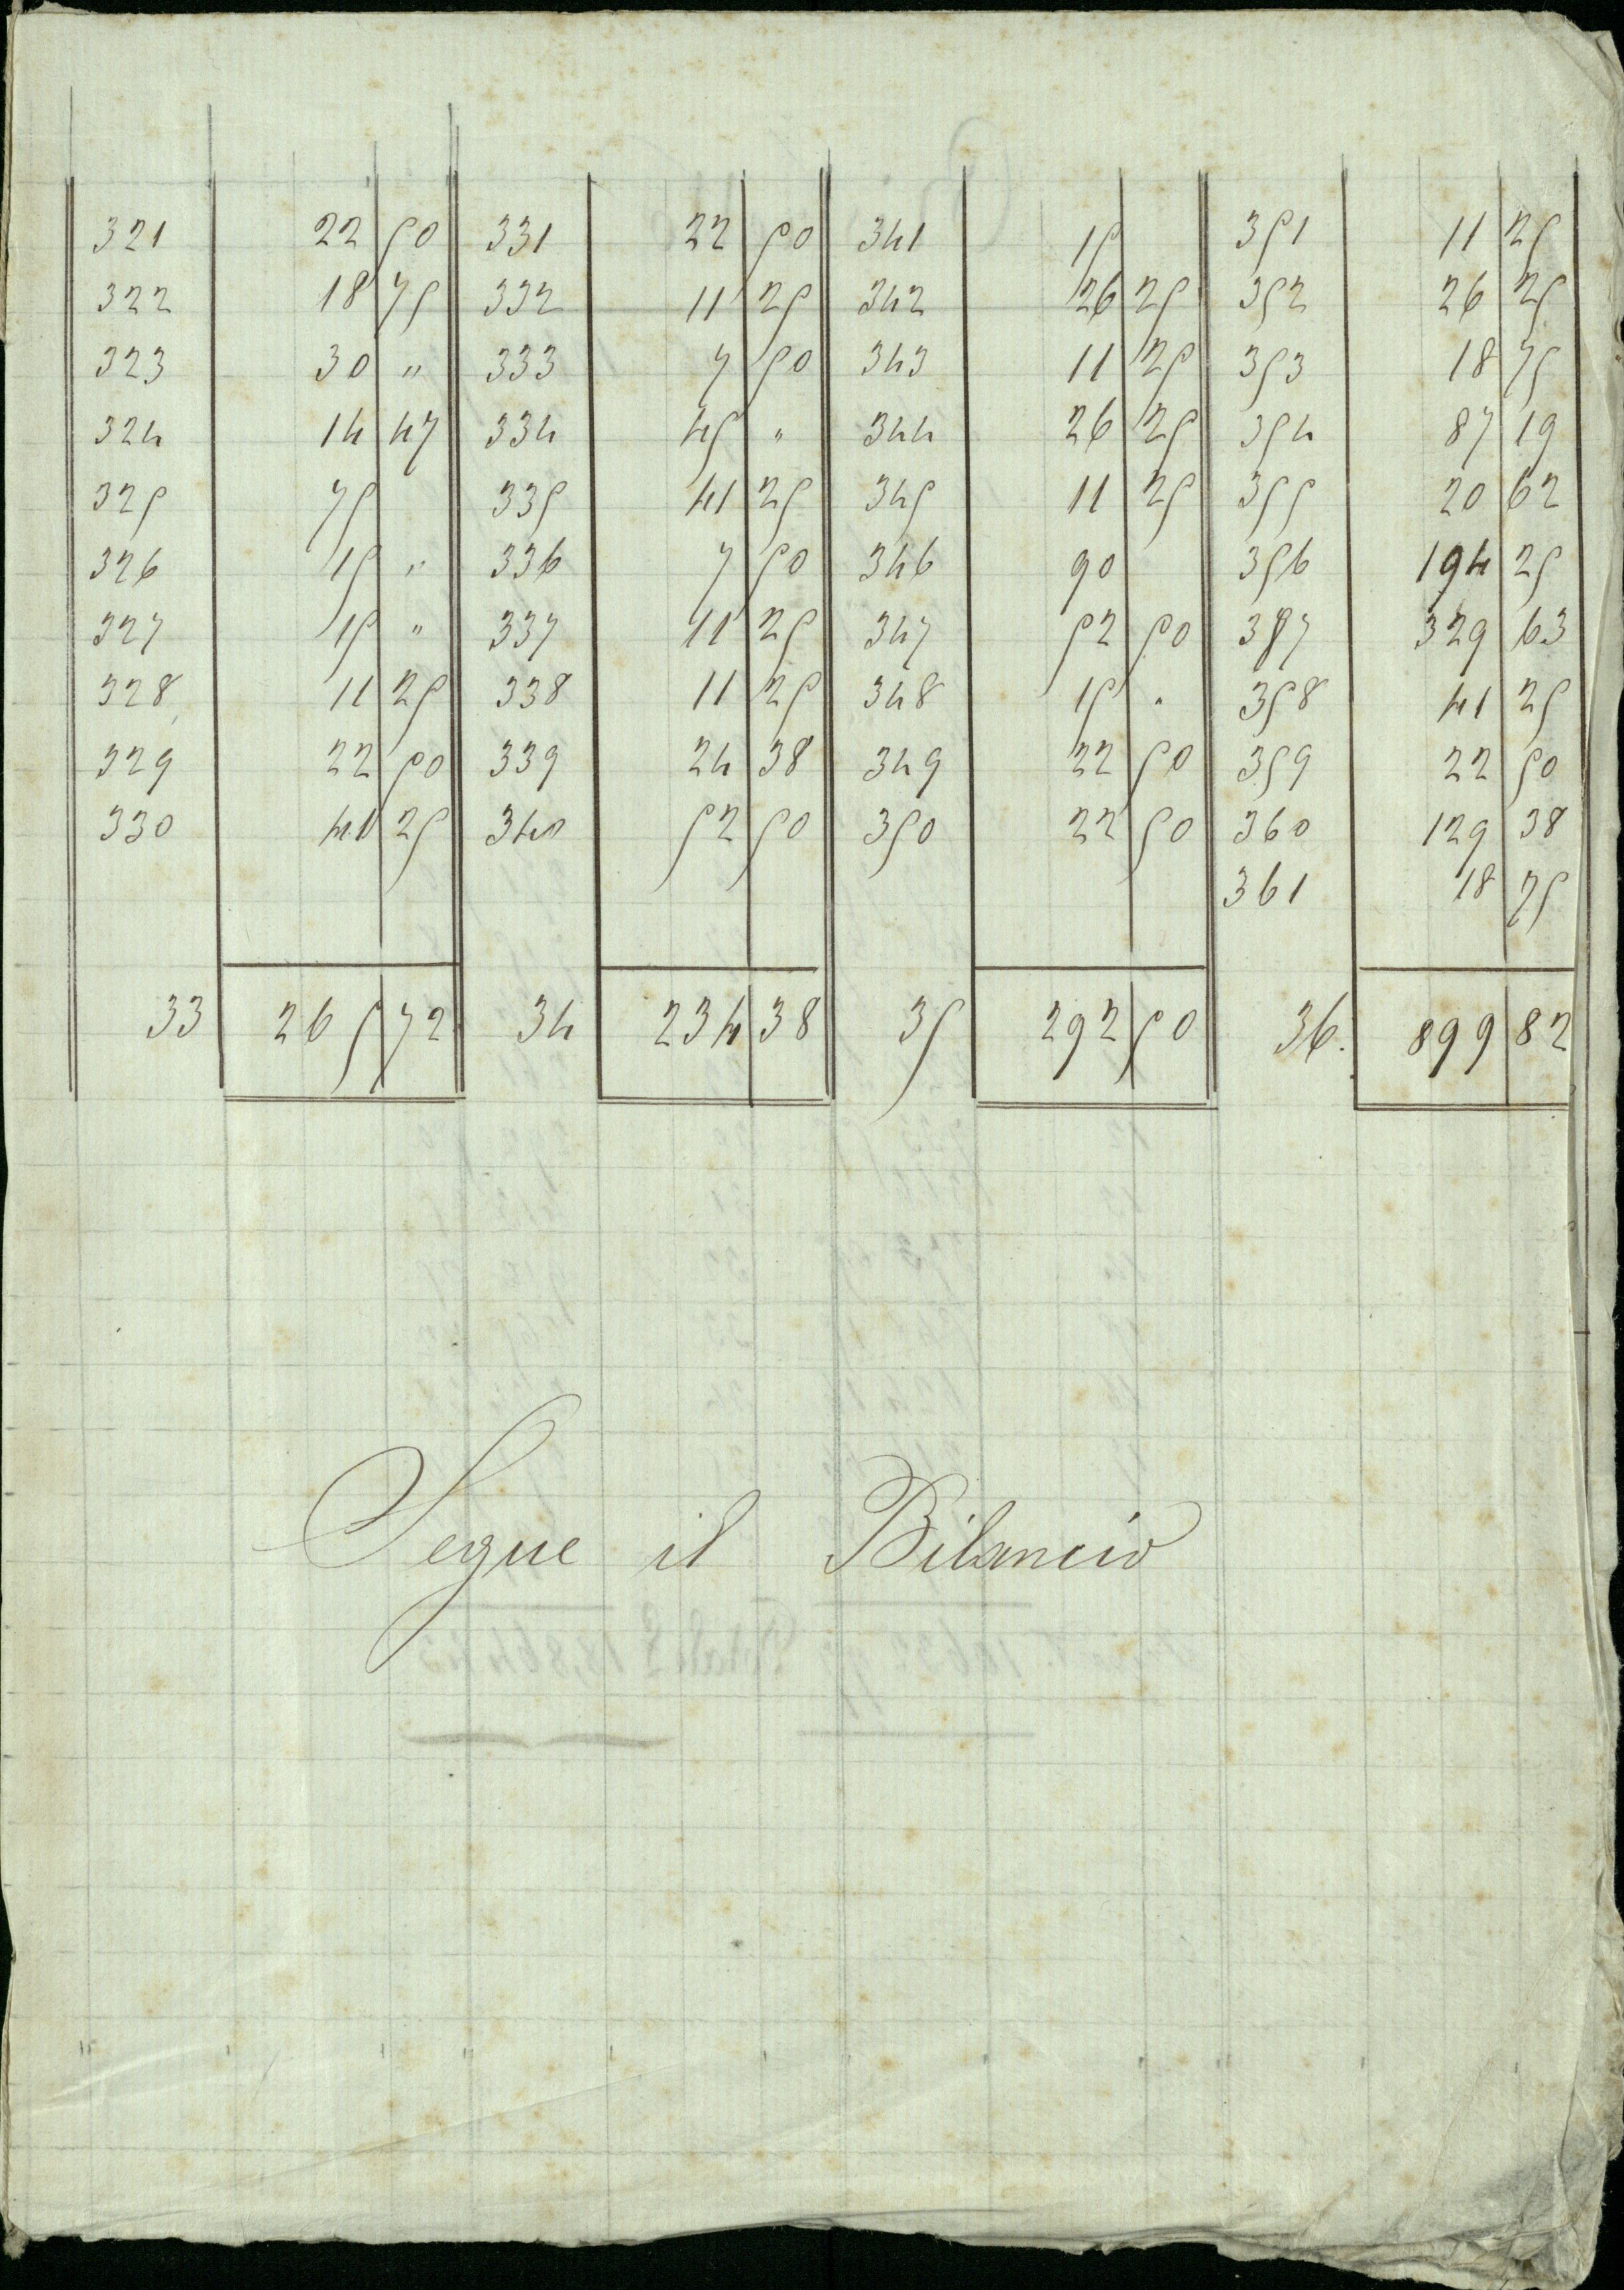 321 22 50 331 22 50 341 15 351 11 25
322 18 75 332 11 25 342 26 25 352 26 25
323 30 " 333 7 50 343 11 25 353 18 75
324 14 47 334 45 " 344 26 25 354 87 19
325 75 335 41 25 345 11 25 355 20 62
326 15 " 336 7 50 346 90 356 194 25
327 15 " 337 11 25 347 52 50 357 329 63
328 11 25 338 11 25 348 15 " 358 41 25
329 22 50 339 24 38 349 22 50 359 22 50
330 41 25 340 52 50 350 22 50 360 129 38
361 18 75
33 265 72 34 234 38 35 292 50 36. 899 82
Segue il Bilancio